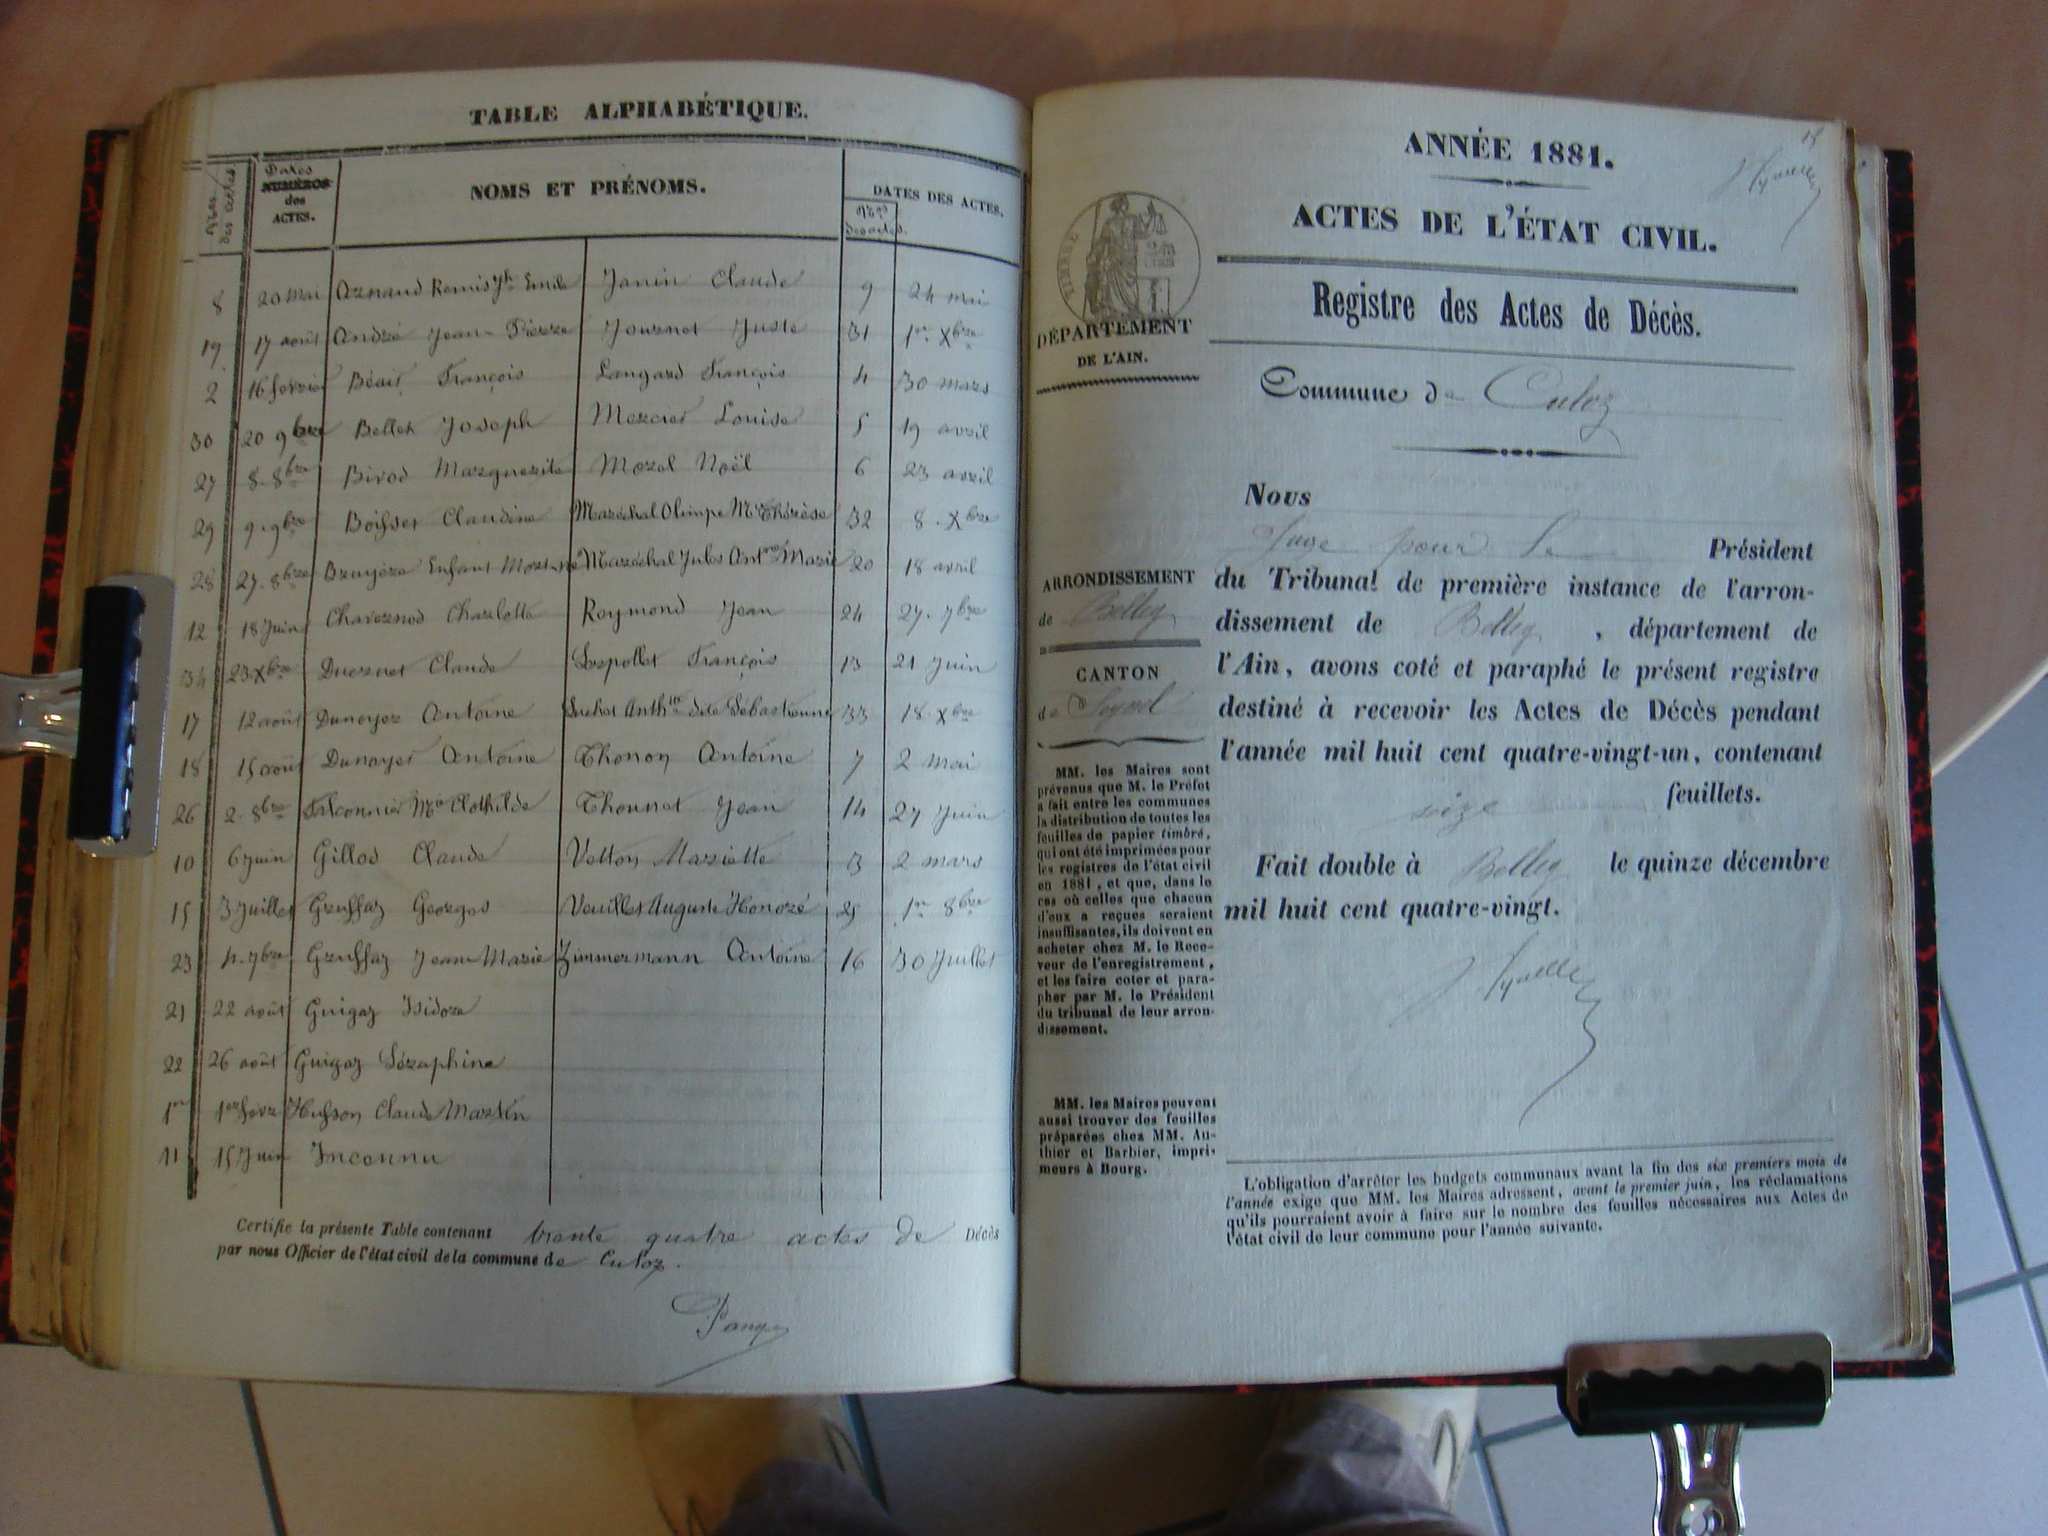 TABLE ALPHABÉTIQUE.
Nros des actes Dates NUMÉROS des ACTES. NOMS ET PRÉNOMS. DATES DES ACTES.
Nros des actes.
8 20 Mai Aznaud Remis Jh Emile Janin Claude 9 24 mai
19 17 août André Jean-Pierre Journet Juste 31 1er Xbre
2 16 fevrier Béait François Langard François 4 30 mars
30 20 9bre Bellet Joseph Mercier Louise 5 19 avril
27 8-8bre Bivod Marguerite Morel Noël 6 23 avril
29 9-9bre Boisset Claudine Maréchal Olimpe Mie Thérèse 32 8-Xbre
28 27-8bre Bruyère Enfant Mort-né Maréchal Jules Antne Marie 20 18 avril
12 18 Juin Chavernod Charlotte Roymond Jean 24 27-7bre
34 23 Xbre Ducruet Claude Serpollet François 13 21 Juin
17 12 août Dunoyer Antoine Suchet Anthtte dite Sébastienne 33 18-Xbre
18 15 août Dunoyer Antoine Thonon Antoine 7 2 mai
26 2-8bre Falconnier Mie Clothilde Thounet Jean 14 27 Juin
10 6 Juin Gillod Claude Vetton Mariette 3 2 mars
15 3 Juillet Gruffaz Georges Veuillet Auguste Honoré 25 1er 8bre
23 4-7bre Gruffaz Jean-Marie Zimmermann Antoine 16 30 Juillet
21 22 août Guigaz Isidore
22 26 août Guigoz Séraphine
1er 1er fevr Husson Claude Martin
11 15 Juin Inconnu
Certifie la présente Table contenant trente quatre actes de Décès
par nous Officier de l'état civil de la commune de Culoz.
ANNÉE 1881.
ACTES DE L'ÉTAT CIVIL.
Registre des Actes de Décès.
TIMBRE
DÉPARTEMENT
DE L'AIN.
Commune de Culoz
Nous
Juge pour le Président
du Tribunal de première instance de l'arron-
dissement de Belley, département de
l'Ain, avons coté et paraphé le présent registre
destiné à recevoir les Actes de Décès pendant
l'année mil huit cent quatre-vingt-un, contenant
seize feuillets.
Fait double à Belley le quinze décembre
mil huit cent quatre-vingt.
ARRONDISSEMENT
de Belley
CANTON
de Seyssel
MM. les Maires sont
prévenus que M. le Préfet
a fait entre les communes
la distribution de toutes les
feuilles de papier timbré,
qui ont été imprimées pour
les registres de l'état civil
en 1881, et que, dans le
cas où celles que chacun
d'eux a reçues seraient
insuffisantes, ils doivent en
acheter chez M. le Rece-
veur de l'enregistrement,
et les faire coter et para-
pher par M. le Président
du tribunal de leur arron-
dissement.
MM. les Maires peuvent
aussi trouver des feuilles
préparées chez MM. Au-
thier et Barbier, impri-
meurs à Bourg.
L'obligation d'arrêter les budgets communaux avant la fin des six premiers mois de
l'année exige que MM. les Maires adressent, avant le premier juin, les réclamations
qu'ils pourraient avoir à faire sur le nombre des feuilles nécessaires aux Actes de
l'état civil de leur commune pour l'année suivante.